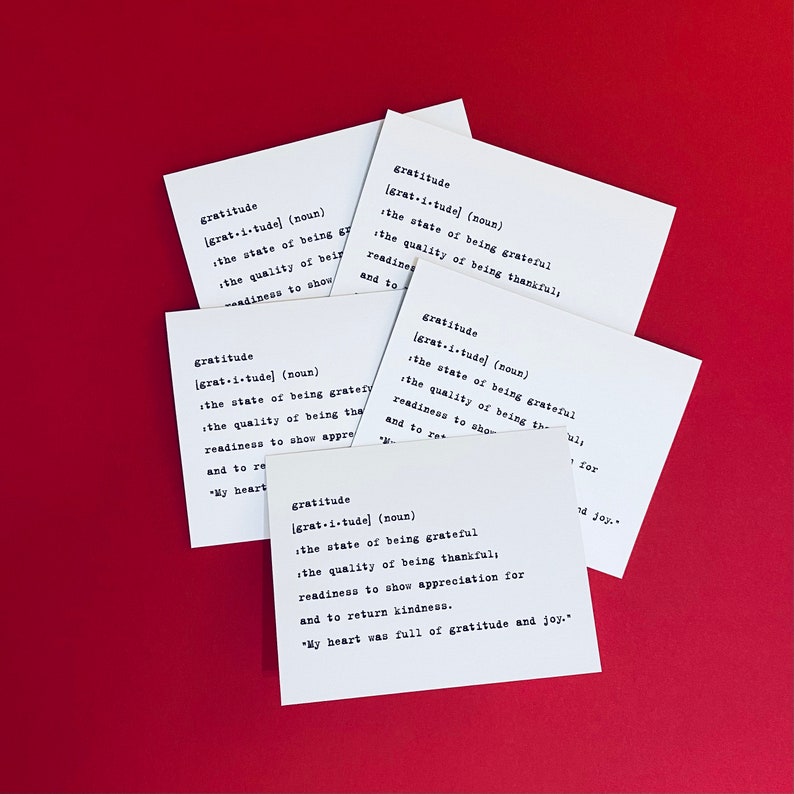 gratitude
[grat•i•tude] (noun)
:the state of being gr
:the quality of bein
readiness to show
gratitude
[grat•i•tude] (noun)
:the state of being grateful
:the quality of being thankful;
readiness
and to
gratitude
[grat•i•tude] (noun)
:the state of being grateful
:the quality of being tha
readiness to show appre
and to re
"My heart
gratitude
[grat•i•tude] (noun)
:the state of being grateful
:the quality of being th ul;
readiness to show for
and to return
"My nd joy."
gratitude
[grat•i•tude] (noun)
:the state of being grateful
:the quality of being thankful;
readiness to show appreciation for
and to return kindness.
"My heart was full of gratitude and joy."